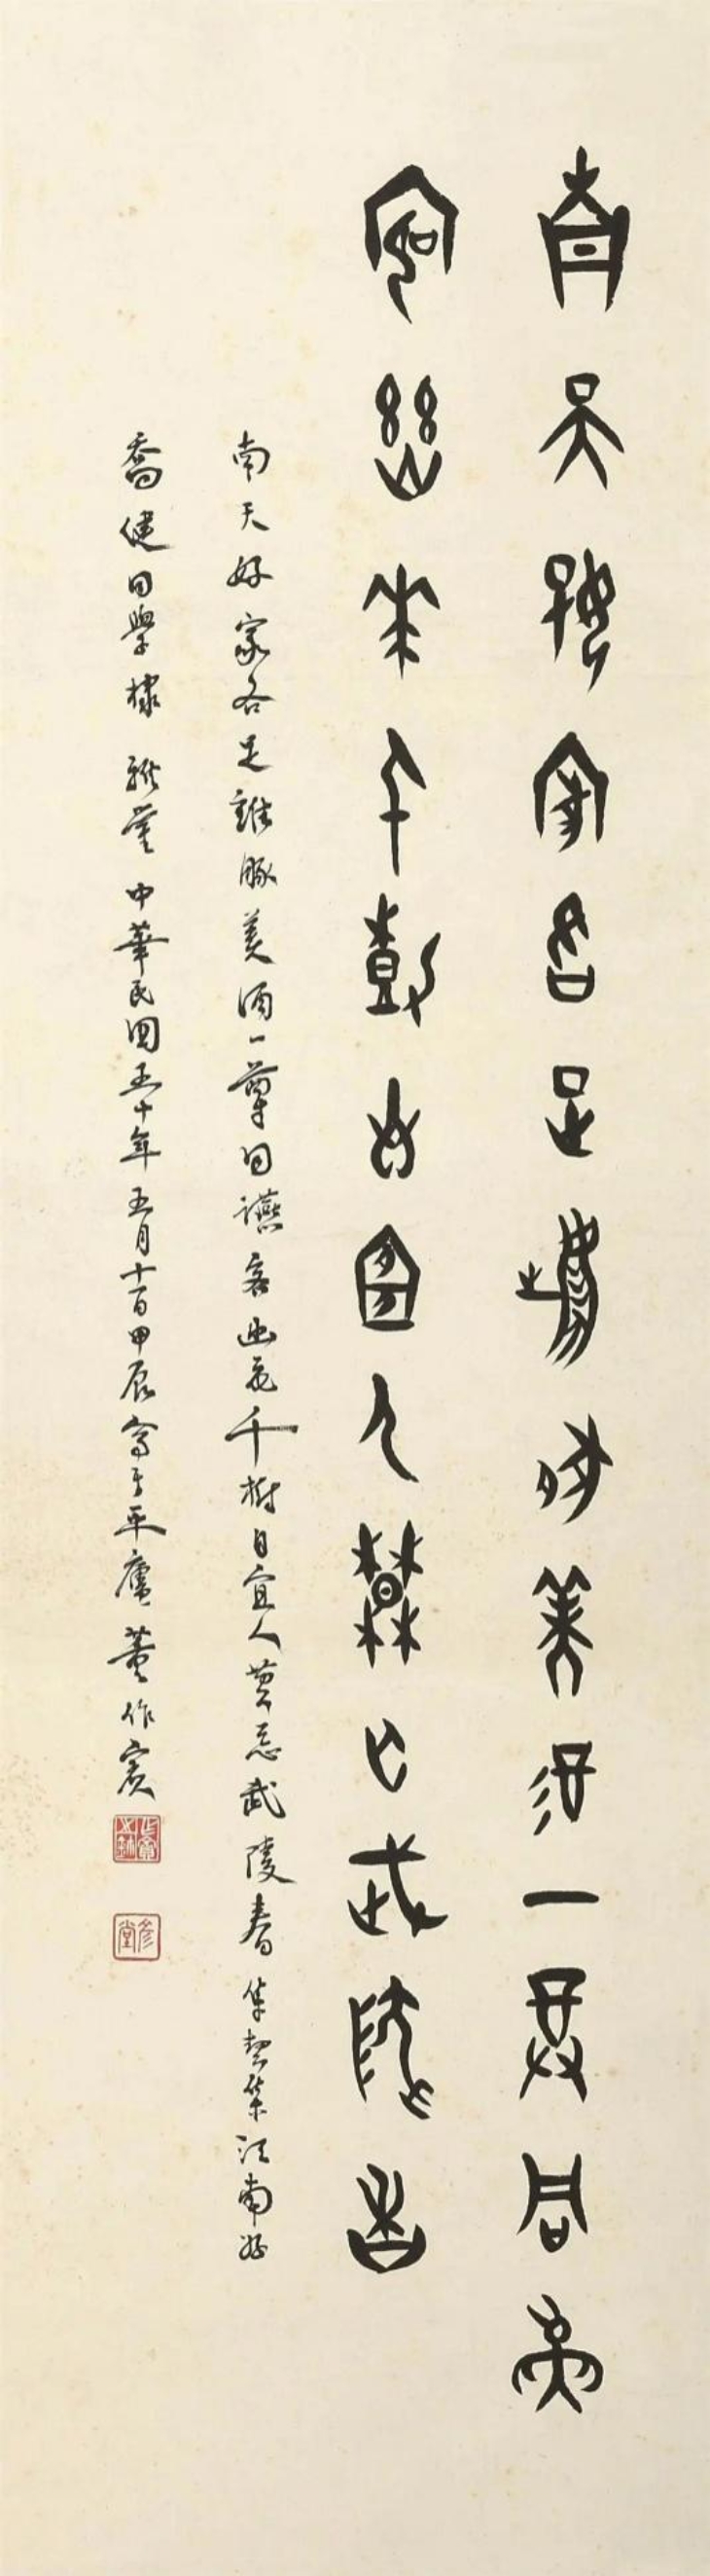 南天好家各足雞豚美酒一尊同燕
客幽花千樹自宜人莫亡武陵春
南天好家各足雞豚美酒一尊同讌客幽花千樹自宜人莫忘武陵春 集契集江南好
喬健同學棣 雅鑒 中華民國五十年五月十一日甲辰寫于平廬 董作賓
彥堂